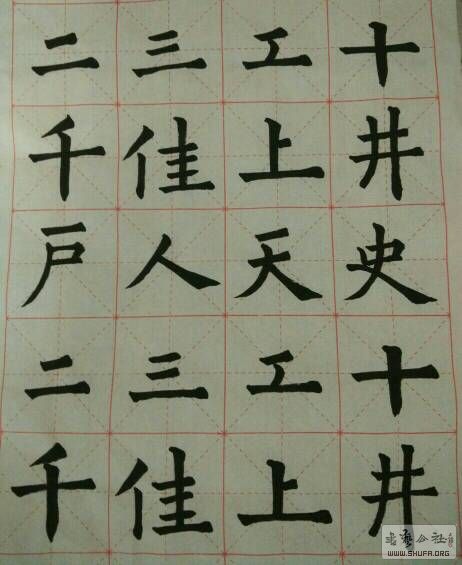 二三工十
千佳上井
户人天史
二三工十
千佳上井
书艺公社
WWW.SHUFA.ORG